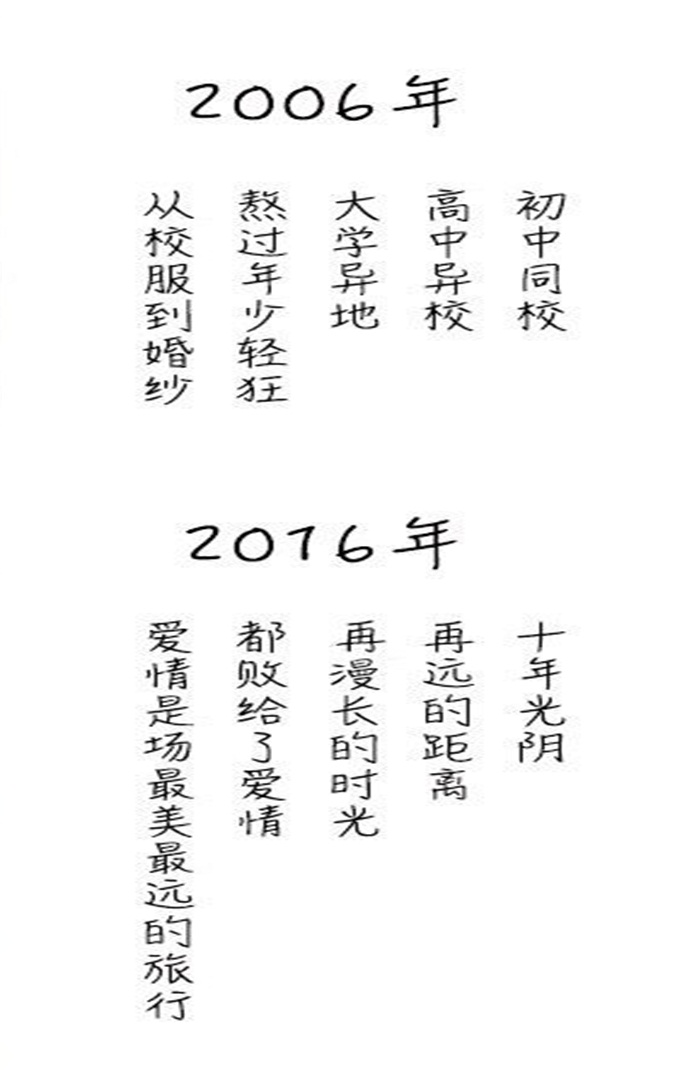 2006年
初中同校
高中异校
大学异地
熬过年少轻狂
从校服到婚纱
2016年
十年光阴
再远的距离
再漫长的时光
都败给了爱情
爱情是场最美最远的旅行